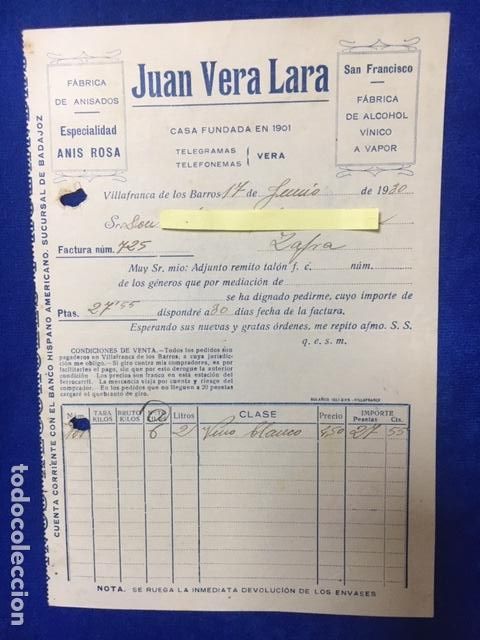 FÁBRICA
DE ANISADOS
Especialidad
ANIS ROSA
Juan Vera Lara
CASA FUNDADA EN 1901
TELEGRAMAS
TELEFONEMAS
VERA
San Francisco
FÁBRICA
DE ALCOHOL
VÍNICO
A VAPOR
CUENTA CORRIENTE CON EL BANCO HISPANO AMERICANO. SUCURSAL DE BADAJOZ
Villafranca de los Barros 17 de Junio de 1930
Sr. Don
Factura núm. 725 Zafra
Muy Sr. mio: Adjunto remito talón f. c. núm.
de los géneros que por mediación de
se ha dignado pedirme, cuyo importe de
Ptas. 27'55 dispondré a 30 días fecha de la factura.
Esperando sus nuevas y gratas órdenes, me repito afmo. S. S.
q. e. s. m.
CONDICIONES DE VENTA.-Todos los pedidos son
pagaderos en Villafranca de los Barros, a cuya jurisdic-
ción me obligo.- Si giro contra mis compradores, es por
facilitarles el pago, sin que por eso derogue la anterior
condición.- Los precios son franco en esta estación del
ferrocarril. La mercancía viaja por cuenta y riesgo del
comprador. En los pedidos que no lleguen a 20 pesetas
cargaré el quebranto de giro.
Núm. TARA KILOS BRUTO KILOS KILOS Litros CLASE Precio IMPORTE
Pesetas Cts.
6 Vino blanco 4,50 27 55
NOTA. SE RUEGA LA INMEDIATA DEVOLUCIÓN DE LOS ENVASES
todocoleccion